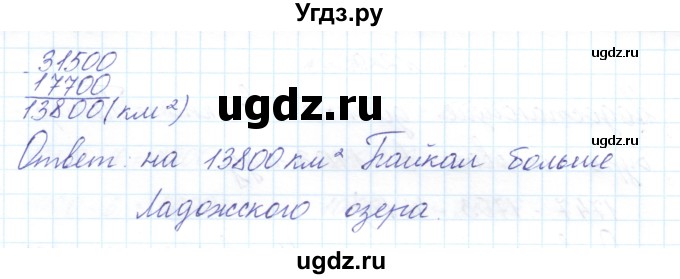 Угдз.ру
- 31500
17700
13800 (км²)
Ответ: на 13800 км² Байкал больше
Ладожского озера.
ugdz.ru
ugdz.ru
ugdz.ru
ugdz.ru
ugdz.ru